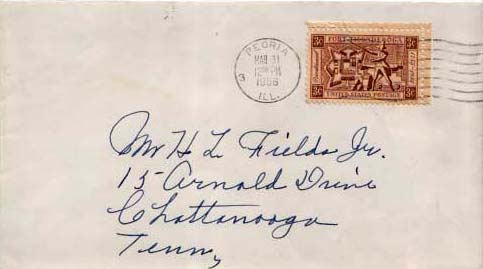 PEORIA
MAR 31
12 PM
1956
ILL.
3
FORT TICONDEROGA
3¢ 3¢
3¢ 3¢
UNITED STATES POSTAGE
Mr H L Fields Jr.
15 Arnold Drive
Chattanooga
Tenn,